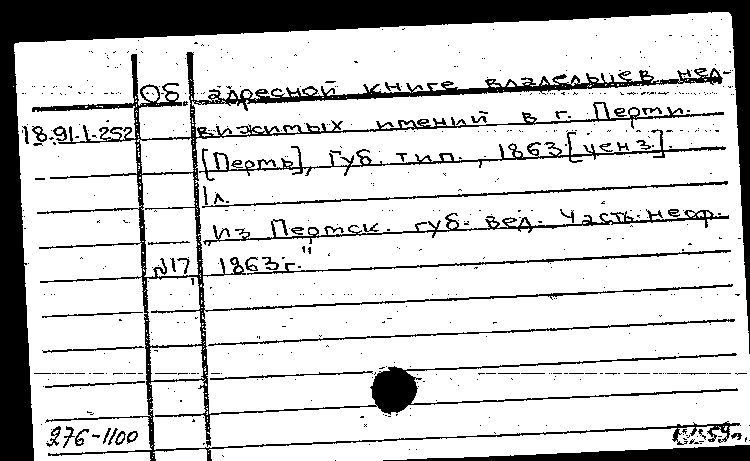 Об адресной книге владельцев нед-
18.91.1.252 вижимых имений в г. Перми.
[Пермь], Губ. тип., 1863 [ценз.].
1 л.
„Из Пермск. губ. вед. Часть неоф.
№17, 1863 г."
276-1100